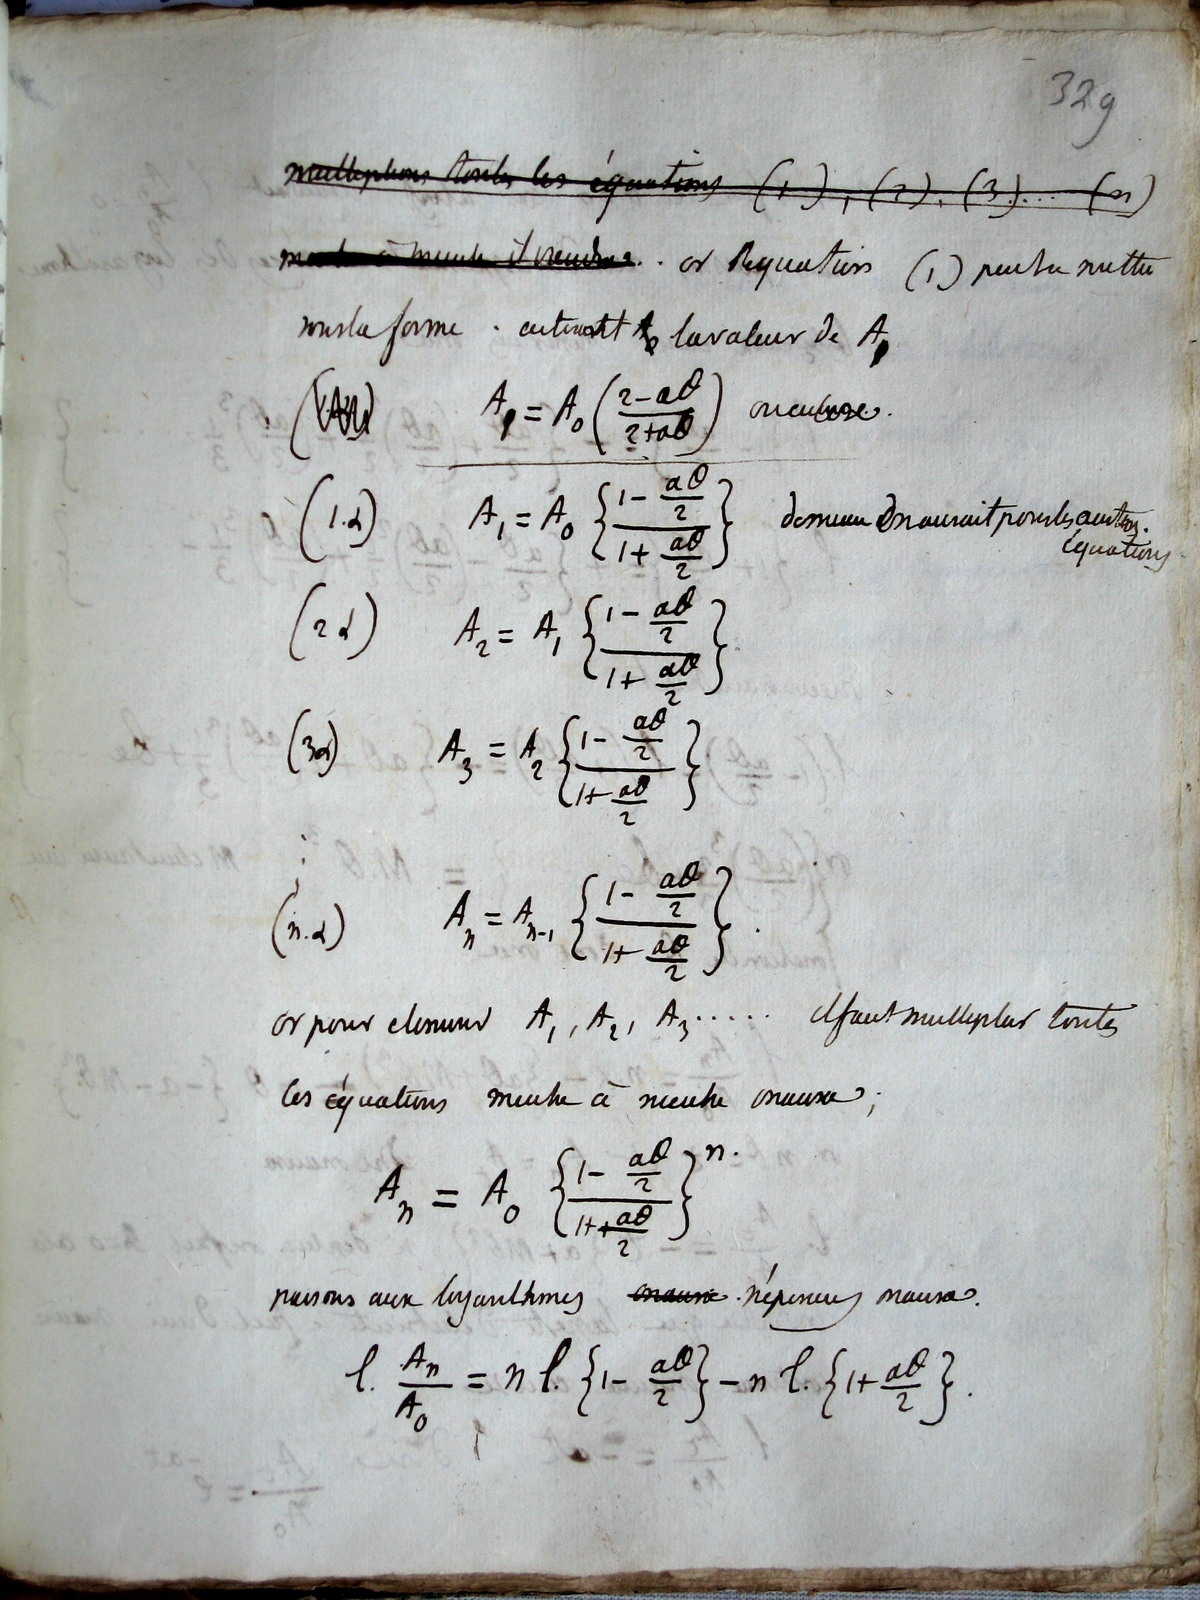 329
multiplions toutes les équations (1), (2), (3)... (n)
membre à membre il viendra.. or l'équation (1) peut se mettre
sous la forme . en tirant la valeur de A₁
A₁ = A₀ ((2-aθ)/(2+aθ)) ou encore.
(1.α) A₁ = A₀ {(1 - aθ/2)/(1 + aθ/2)} de même on aurait pour les autres.
équations
(2α) A₂ = A₁ {(1 - aθ/2)/(1 + aθ/2)}.
(3α) A₃ = A₂ {(1 - aθ/2)/(1 + aθ/2)}
(n.α) Aₙ = Aₙ₋₁ {(1 - aθ/2)/(1 + aθ/2)}.
or pour éliminer A₁, A₂, A₃ ..... il faut multiplier toutes
les équations membre à membre on aura;
Aₙ = A₀ {(1 - aθ/2)/(1 + aθ/2)}ⁿ.
passons aux logarithmes onaura népériens on aura.
l. Aₙ/A₀ = n l. {1 - aθ/2} - n l. {1 + aθ/2}.